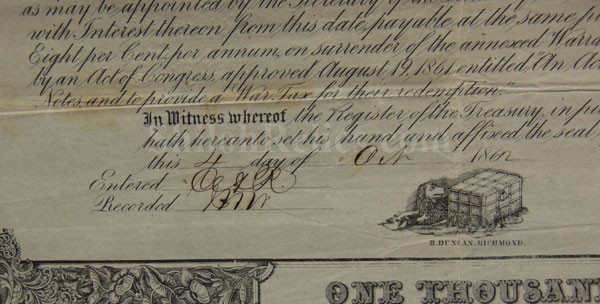 as may be appointed by the Secretary of the
with Interest thereon from this date, payable at the same
Eight per Cent. per annum, on surrender of the annexed Warra
by an Act of Congress, approved August 19, 1861, entitled "An Ac
Notes, and to provide a War Tax for their redemption."
In Witness whereof, the Register of the Treasury, in pu
hath hereunto set his hand and affixed the seal
this 4 day of Oct 1862
Entered
Recorded
B. DUNCAN, RICHMOND.
ONE THOUSAN